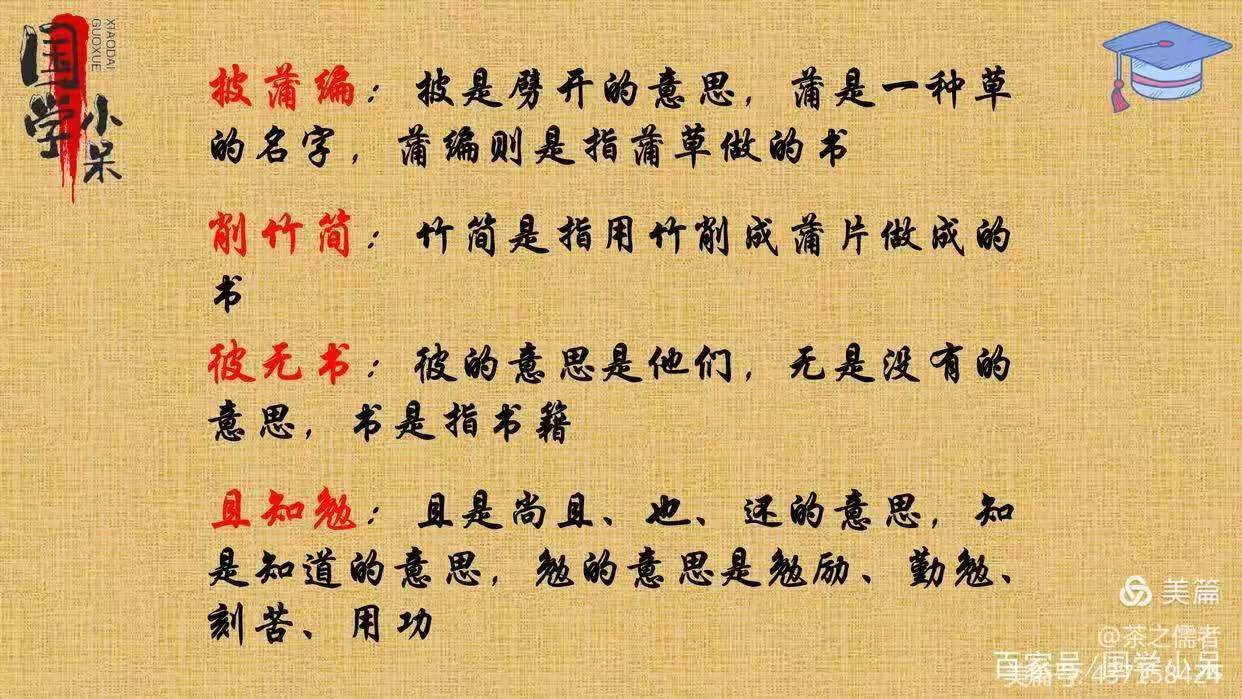 国学小呆
XIAODAI
GUOXUE
披蒲编：披是劈开的意思，蒲是一种草
的名字，蒲编则是指蒲草做的书
削竹简：竹简是指用竹削成蒲片做成的
书
彼无书：彼的意思是他们，无是没有的
意思，书是指书籍
且知勉：且是尚且、也、还的意思，知
是知道的意思，勉的意思是勉励、勤勉、
刻苦、用功
美篇
@茶之儒者
百家号/国学小呆